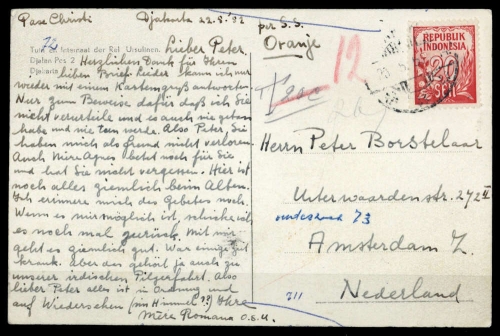 Pax Christi Djakarta 22.8.'52 per S.S.
Oranje
Internaat der Rel. Ursulinen.
Djalan Pos 2
Djakarta
Lieber Peter,
Herzlichen Dank für Ihren
lieben Brief. Leider kann ich nur
wieder mit einem Kartengruß antworten.
Nur zum Beweise dafür daß ich Sie
nicht verurteile und es auch nie getan
habe und nie tun werde. Also Peter, Sie
haben mich als Freund nicht verloren.
Auch Mire Agnes betet noch für Sie
und hat Sie nicht vergessen. Hier ist
noch alles ziemlich beim Alten.
Ich erinnere mich des Gebetes noch.
Wenn es mir möglich ist, schicke ich
es noch mal zurück. Mit mir
geht es ziemlich gut. War einige Zeit
krank. Aber das gehört ja auch zu
unserer irdischen Pilgerfahrt. Also
lieber Peter alles ist in Ordnung und
auf Wiedersehen (im Himmel??) Ihre
Mire Romana O.S.U.
12
REPUBLIK
INDONESIA
20
SEN
Herrn Peter Borstelaar
Uiterwaardenstr. 272 II
73
Amsterdam Z.
Nederland